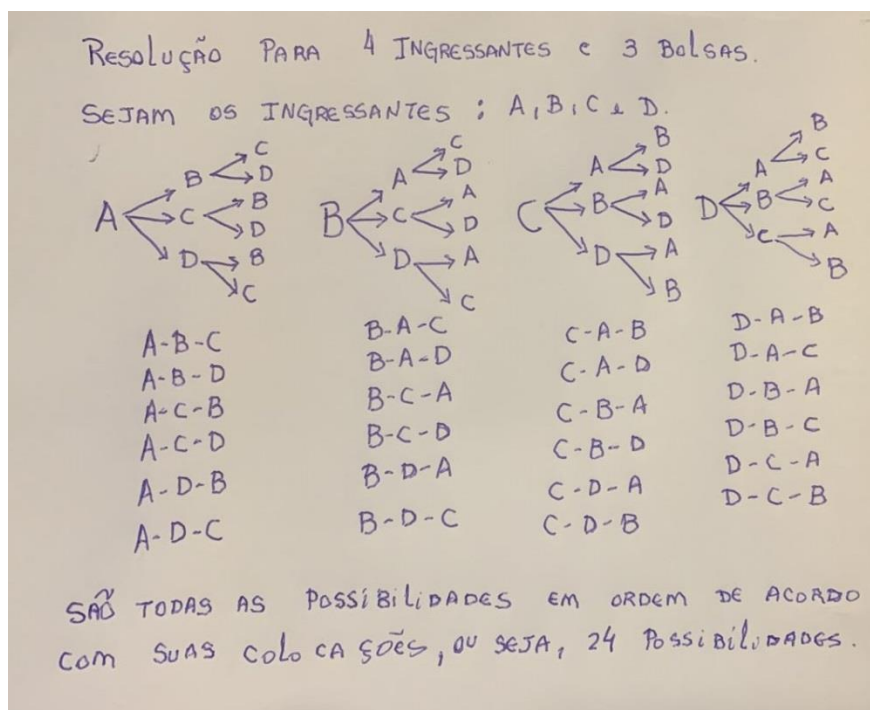 Resolução PARA 4 INGRESSANTES e 3 Bolsas.
SEJAM OS INGRESSANTES : A, B, C e D.
A B C D
C B D
D B C
B A C D
C A D
D A C
C A B D
B A D
D A B
D A B C
B A C
C A B
A-B-C B-A-C C-A-B D-A-B
A-B-D B-A-D C-A-D D-A-C
A-C-B B-C-A C-B-A D-B-A
A-C-D B-C-D C-B-D D-B-C
A-D-B B-D-A C-D-A D-C-A
A-D-C B-D-C C-D-B D-C-B
SÃO TODAS AS POSSIBILIDADES EM ORDEM DE ACORDO
COM SUAS COLOCAÇÕES, OU SEJA, 24 POSSIBILIDADES.